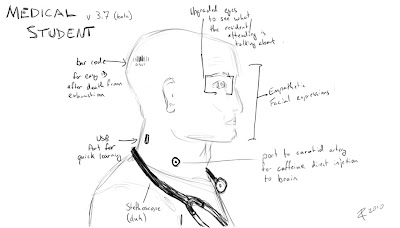 MEDICAL
STUDENT
v 3.7 (beta)
Upgraded eyes
to see what
the resident/
attending is
talking about.
bar code
for easy ID
after death from
exhaustion
Empathetic
Facial expressions
USB
Port for
quick learning
port to carotid artery
for caffeine direct injection
to brain
Stethoscope
(duh)
2010